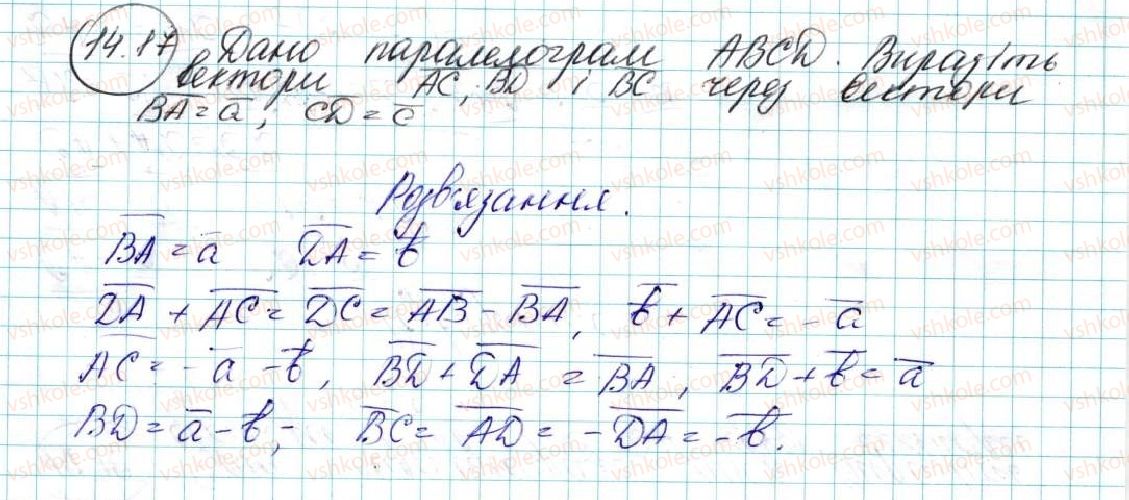 14.17) Дано паралелограм ABCD. Виразіть
вектори AC, BD і BC через вектори
BA = a, CD = c
Розв'язання.
BA = a DA = b
DA + AC = DC = AB - BA, b + AC = - a
AC = - a - b, BD + DA = BA, BD + b = a
BD = a - b; BC = AD = - DA = - b.